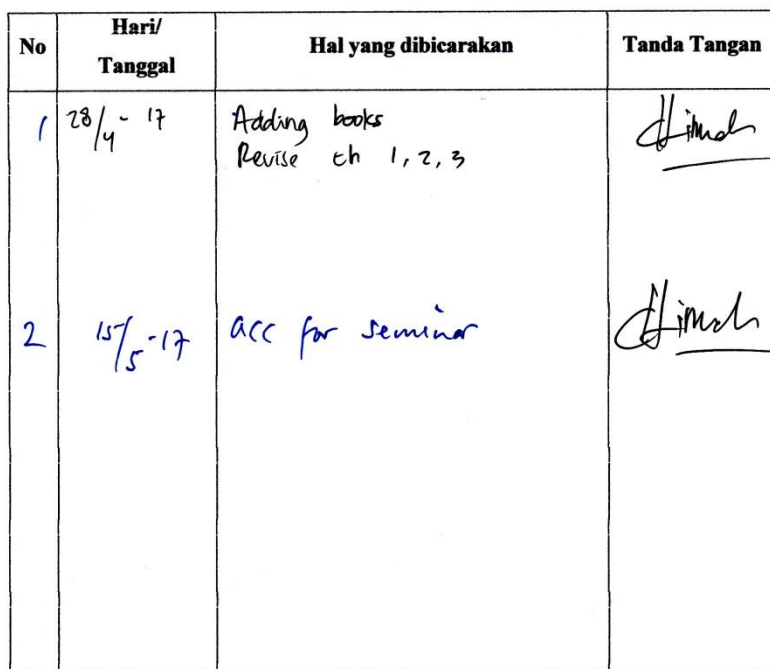 No
Hari/
Tanggal
Hal yang dibicarakan
Tanda Tangan
1
28/4 - 17
Adding books
Revise ch 1, 2, 3
2
15/5 - 17
acc for seminar